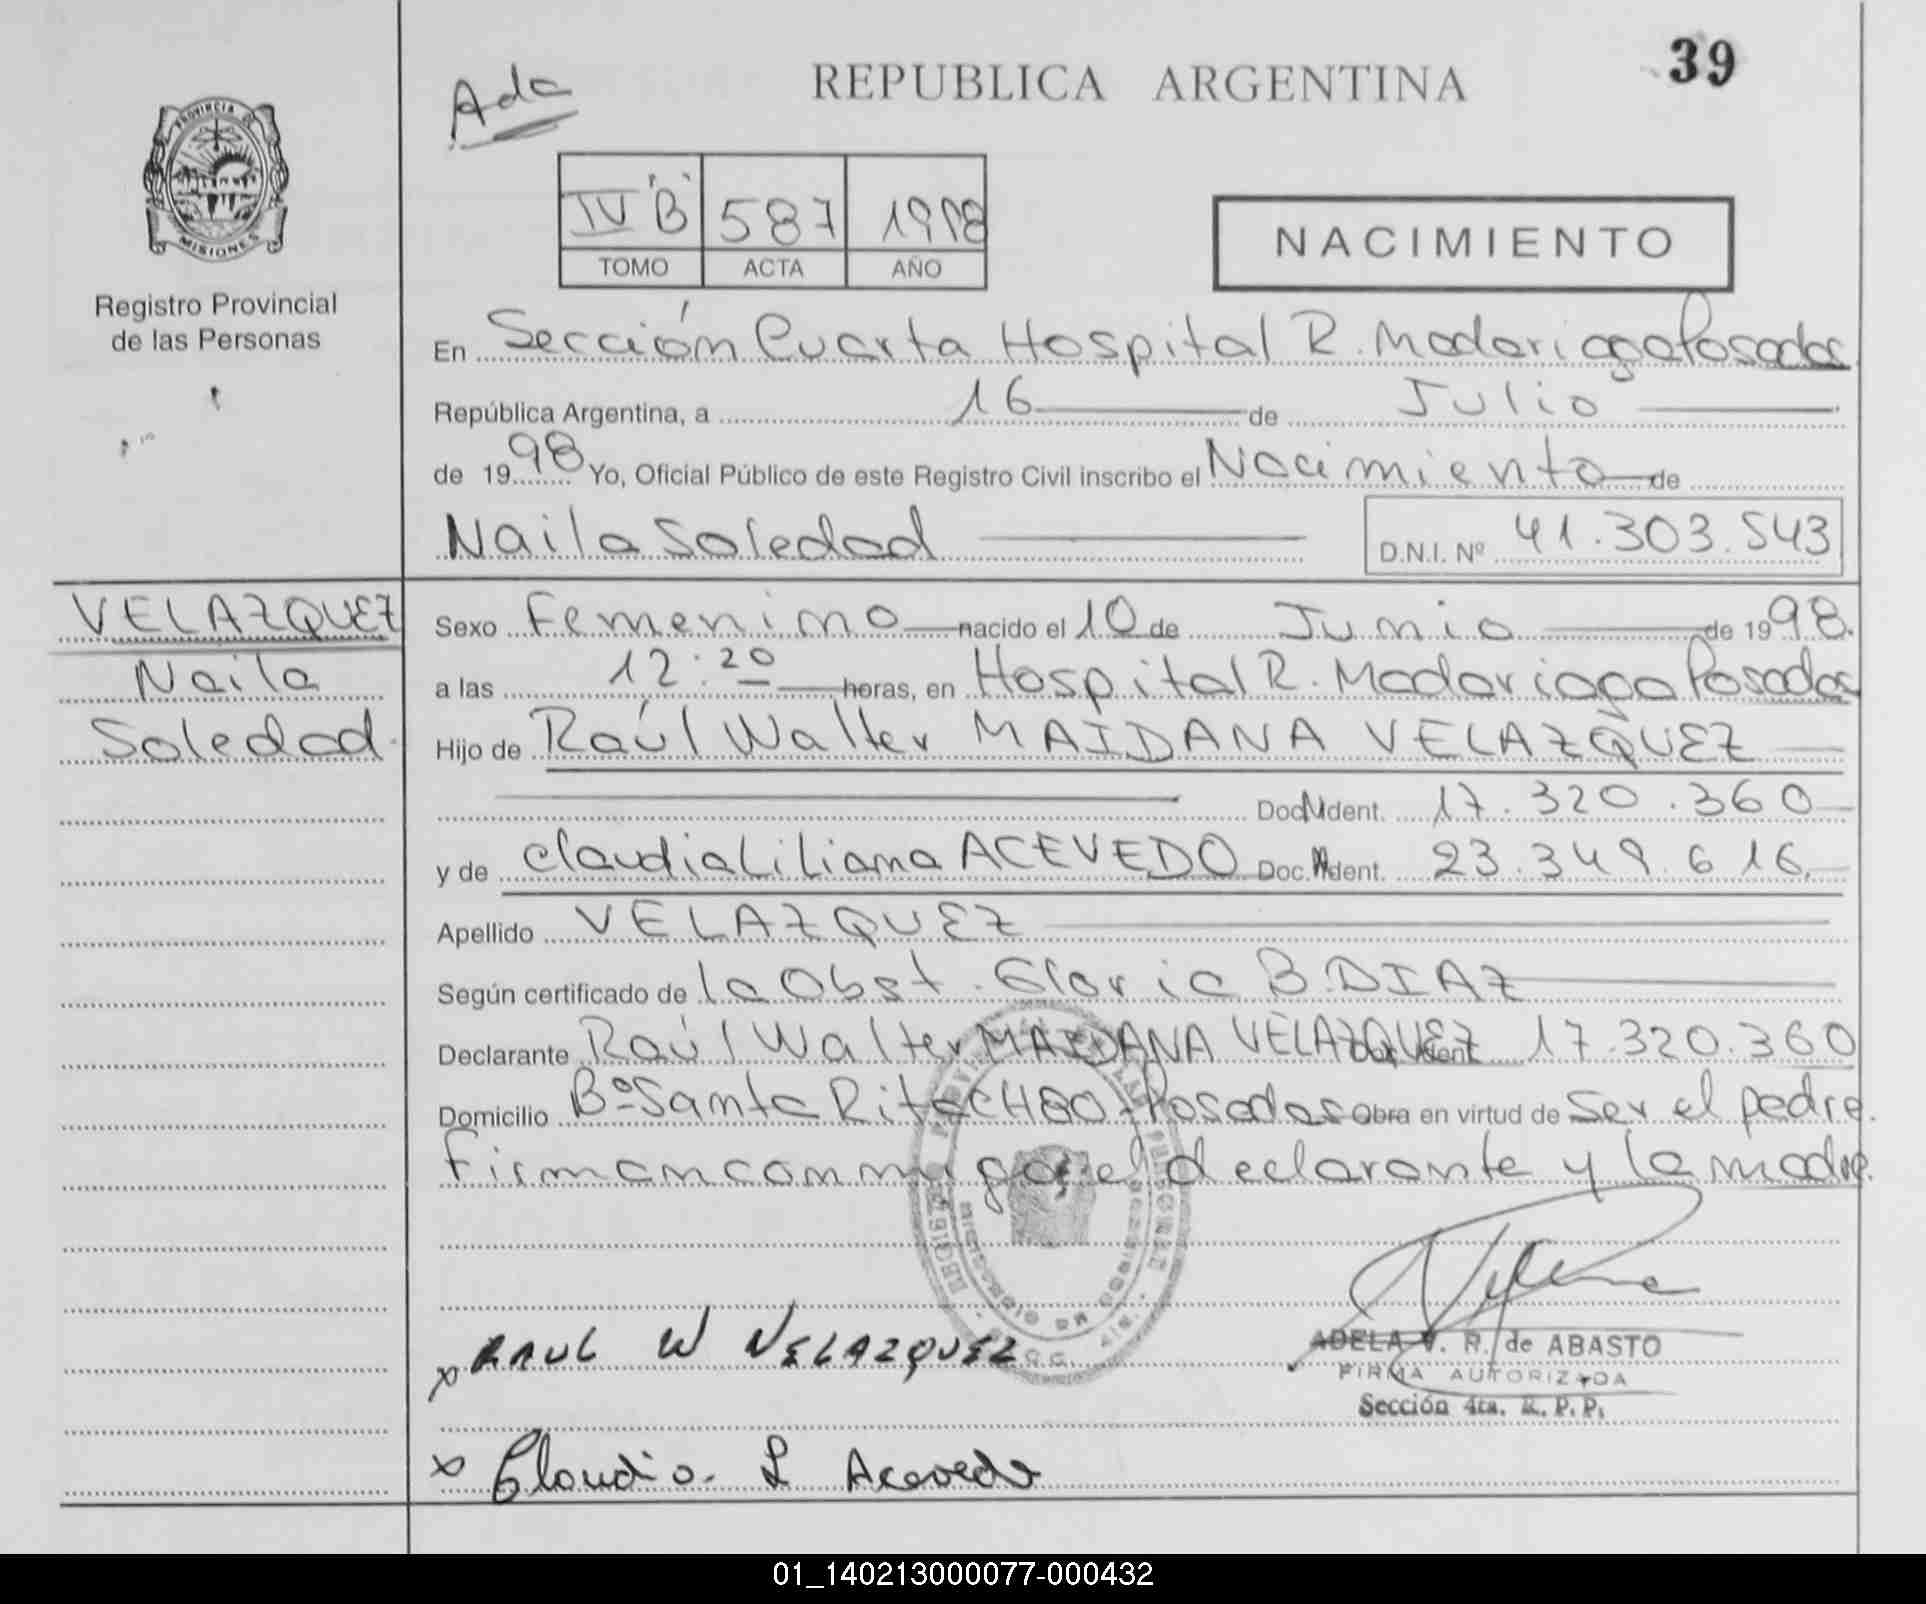 39
Ada
REPUBLICA ARGENTINA
PROVINCIA DE
MISIONES
Registro Provincial
de las Personas
IV "B" 587 1998
TOMO ACTA AÑO
NACIMIENTO
En Sección Cuarta Hospital R. Madariaga Posadas
República Argentina, a 16 de Julio
de 1998 Yo, Oficial Público de este Registro Civil inscribo el Nacimiento de
Naila Soledad D.N.I. Nº 41.303.543
VELAZQUEZ
Naila
Soledad.
Sexo Femenino nacido el 10 de Junio de 1998.
a las 12:20 horas, en Hospital R. Madariaga Posadas
Hijo de Raúl Walter MAIDANA VELAZQUEZ
Doc. Ident. 17.320.360
y de Claudia Liliana ACEVEDO Doc. Ident. 23.349.616.
Apellido VELAZQUEZ
Según certificado de la Obst. Gloria B. DIAZ
Declarante Raúl Walter MAIDANA VELAZQUEZ Doc. Ident 17.320.360
Domicilio Bº Santa Rita CH80 - Posadas Obra en virtud de ser el padre.
Firman conmigo el declarante y la madre.
x RAUL W VELAZQUEZ
ADELA V. R. de ABASTO
FIRMA AUTORIZADA
Sección 4ta. R. P. P.
x Claudia. L Acevedo
01_140213000077-000432